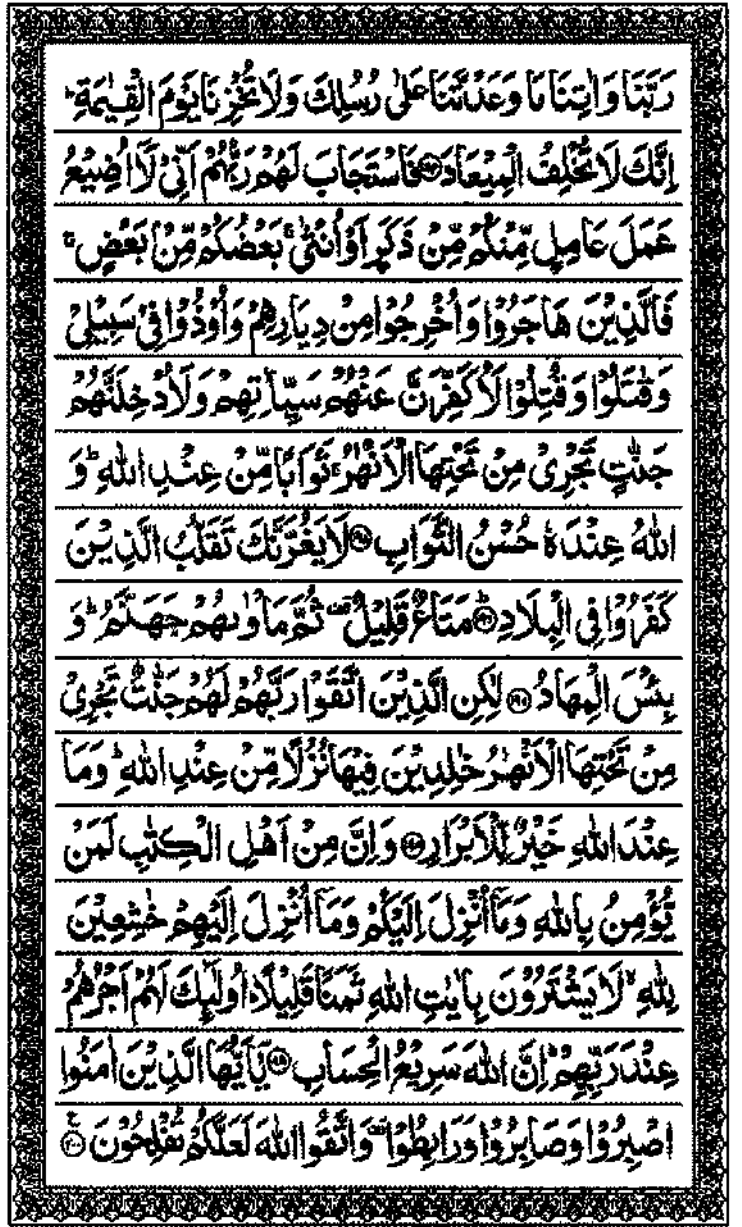 رَبَّنَا وَاٰتِنَا مَا وَعَدْتَّنَا عَلٰى رُسُلِكَ وَلَا تُخْزِنَا يَوْمَ الْقِيٰمَةِ ؕ
اِنَّكَ لَا تُخْلِفُ الْمِيْعَادَ ﴿۱۹۴﴾ فَاسْتَجَابَ لَهُمْ رَبُّهُمْ اَنِّيْ لَاۤ اُضِيْعُ
عَمَلَ عَامِلٍ مِّنْكُمْ مِّنْ ذَكَرٍ اَوْ اُنْثٰى ۚ بَعْضُكُمْ مِّنْۢ بَعْضٍ ۚ
فَالَّذِيْنَ هَاجَرُوْا وَاُخْرِجُوْا مِنْ دِيَارِهِمْ وَاُوْذُوْا فِيْ سَبِيْلِيْ
وَقٰتَلُوْا وَقُتِلُوْا لَاُكَفِّرَنَّ عَنْهُمْ سَيِّاٰتِهِمْ وَلَاُدْخِلَنَّهُمْ
جَنّٰتٍ تَجْرِيْ مِنْ تَحْتِهَا الْاَنْهٰرُ ۚ ثَوَابًا مِّنْ عِنْدِ اللّٰهِ ؕ وَ
اللّٰهُ عِنْدَهٗ حُسْنُ الثَّوَابِ ﴿۱۹۵﴾ لَا يَغُرَّنَّكَ تَقَلُّبُ الَّذِيْنَ
كَفَرُوْا فِي الْبِلَادِ ﴿۱۹۶﴾ؕ مَتَاعٌ قَلِيْلٌ ۫ ثُمَّ مَاْوٰىهُمْ جَهَنَّمُ ؕ وَ
بِئْسَ الْمِهَادُ ﴿۱۹۷﴾ لٰكِنِ الَّذِيْنَ اتَّقَوْا رَبَّهُمْ لَهُمْ جَنّٰتٌ تَجْرِيْ
مِنْ تَحْتِهَا الْاَنْهٰرُ خٰلِدِيْنَ فِيْهَا نُزُلًا مِّنْ عِنْدِ اللّٰهِ ؕ وَمَا
عِنْدَ اللّٰهِ خَيْرٌ لِّلْاَبْرَارِ ﴿۱۹۸﴾ وَاِنَّ مِنْ اَهْلِ الْكِتٰبِ لَمَنْ
يُّؤْمِنُ بِاللّٰهِ وَمَاۤ اُنْزِلَ اِلَيْكُمْ وَمَاۤ اُنْزِلَ اِلَيْهِمْ خٰشِعِيْنَ
لِلّٰهِ ۙ لَا يَشْتَرُوْنَ بِاٰيٰتِ اللّٰهِ ثَمَنًا قَلِيْلًا ؕ اُولٰٓئِكَ لَهُمْ اَجْرُهُمْ
عِنْدَ رَبِّهِمْ ؕ اِنَّ اللّٰهَ سَرِيْعُ الْحِسَابِ ﴿۱۹۹﴾ يٰۤاَيُّهَا الَّذِيْنَ اٰمَنُوا
اصْبِرُوْا وَصَابِرُوْا وَرَابِطُوْا ۫ وَاتَّقُوا اللّٰهَ لَعَلَّكُمْ تُفْلِحُوْنَ ﴿۲۰۰﴾